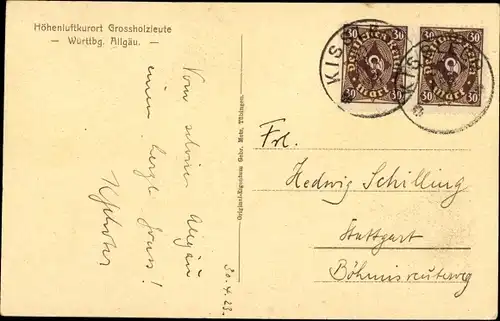 Höhenluftkurort Grossholzleute
— Württbg. Allgäu. —
Vom schönen Allgäu
einen herzl. Gruss!
30.4.23.
Original-Eigentum Gebr. Metz, Tübingen.
KISS
30 30
Deutsches Reich
30 Mark 30
KISS
30 30
Deutsches Reich
30 Mark 30
Frl.
Hedwig Schilling
Stuttgart
Böhmisreuteweg